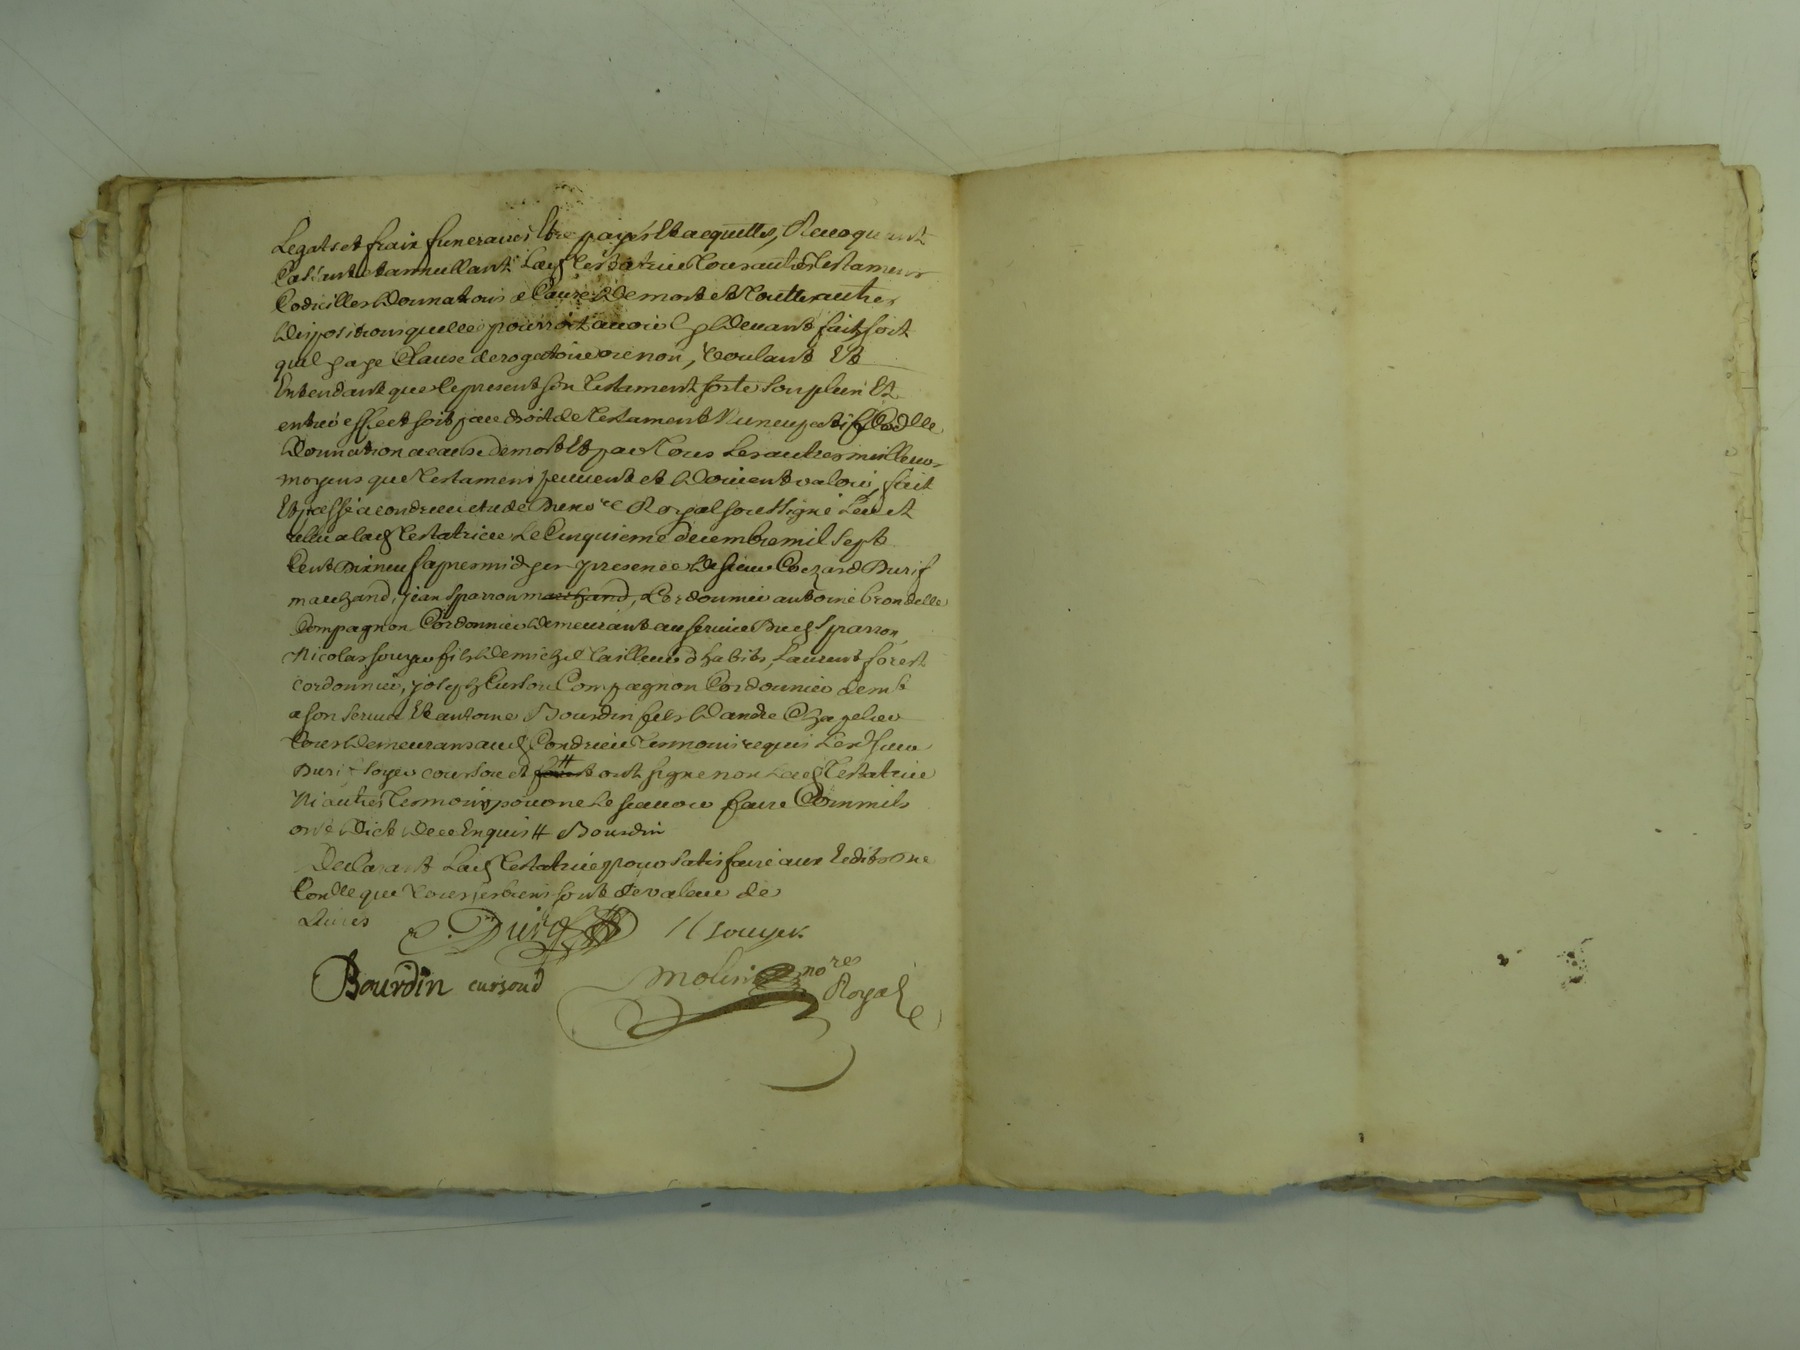 Legats et fraix funeraires Etre payés Et acquittes, Revoquant
Cassant et annullant Lad Testatrice Tous autres Testamens
Codicilles Donnations a Cause De mort et Touttes autres
Dispositions quelle pourroit avoir Cy Devant fait soit
quil y aye Clause derogatoire ou non, Voulant Et
Entendant que le present son Testament sorte son plein Et
entier effect soit par droit de Testament Nuncupatif Codille
Donnation a cause de mort Et par Tous Les autres meilleurs
moyens que Testamens peuvent et Doivent valoir, fait
Et passé a condrieu etude Du no.re Royal soussigné Leu et
relu a lad Testatrice Le Cinquieme decembre mil sept
Cent Dix neuf apres midy en presence De sieur Cezard Durif
marchand, jean Sparron marchand, Cordonnier antoine brondelle
Compagnon Cordonnier Demeurant au service Dud Sparron,
Nicolas souyer fils De michel tailleur d habits, Laurent forest
cordonnier, joseph Curson Compagnon Cordonnier dem.t
a son service Et antoine Bourdin fils D andré Chapelier
Tous Demeurans aud Condrieu Temmoins requis Led sieur
Durif soyer courson et forest ont signe non Lad Testatrice
Ni autres Temmoins pour ne Le scavoir faire Comm ils
ont Dict De ce Enquis # Bourdin
Declarant Lad Testatrice pour satisfaire aux Edits Du
Conlle que Tous ses biens sont de valeur de
Livres C. Durif N souyer
Bourdin cursoud Molin no.re
Royal